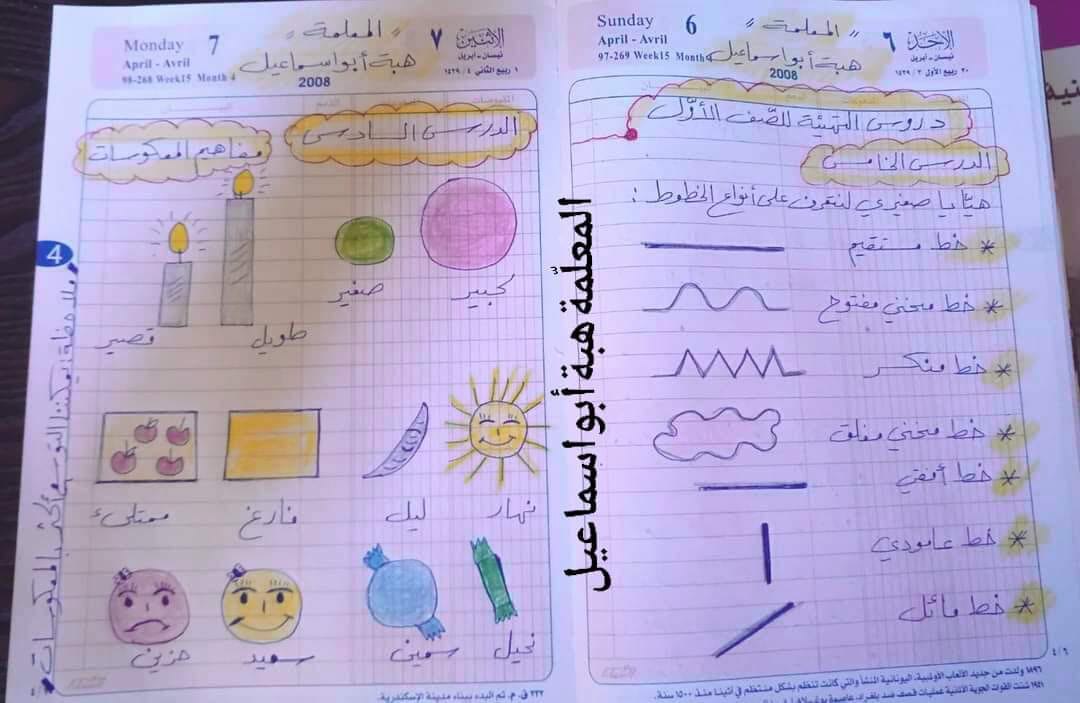 Sunday 6
April - Avril
97-269 Week15 Month 4
2008
" المعلمة "
هبة أبو اسماعيل
٦ الأحد
نيسان - ابريل
دروس التهيئة للصّف الأوّل
الدرس الخامس
هيّا يا صغيري لنتعرف على أنواع الخطوط :
* خط مستقيم
* خط منحني مفتوح
* خط منكسر
* خط منحني مغلق
* خط أفقي
* خط عامودي
* خط مائل
٤/٦
١٨٩٦ ولدت من جديد الألعاب الاولمبية، اليونانية المنشأ والتي كانت تنظم بشكل منتظم في أثينا منذ ١٥٠٠ سنة.
المعلّمة هبة أبو اسماعيل
Monday 7
April - Avril
98-268 Week15 Month 4
2008
" المعلمة "
هبة أبو اسماعيل
٧ الاثنين
نيسان - ابريل
١ ربيع الثاني ٤ / ١٤٢٩
الدرس السادس
مفاهيم المعكوسات
كبير صغير
طويل قصير
نهار ليل فارغ ممتلىء
نحيل سمين سعيد حزين
4
ملاحظة: يمكننا التوسع أكثر بالمعكوسات
٣٣٢ ق. م. تم البدء ببناء مدينة الإسكندرية.